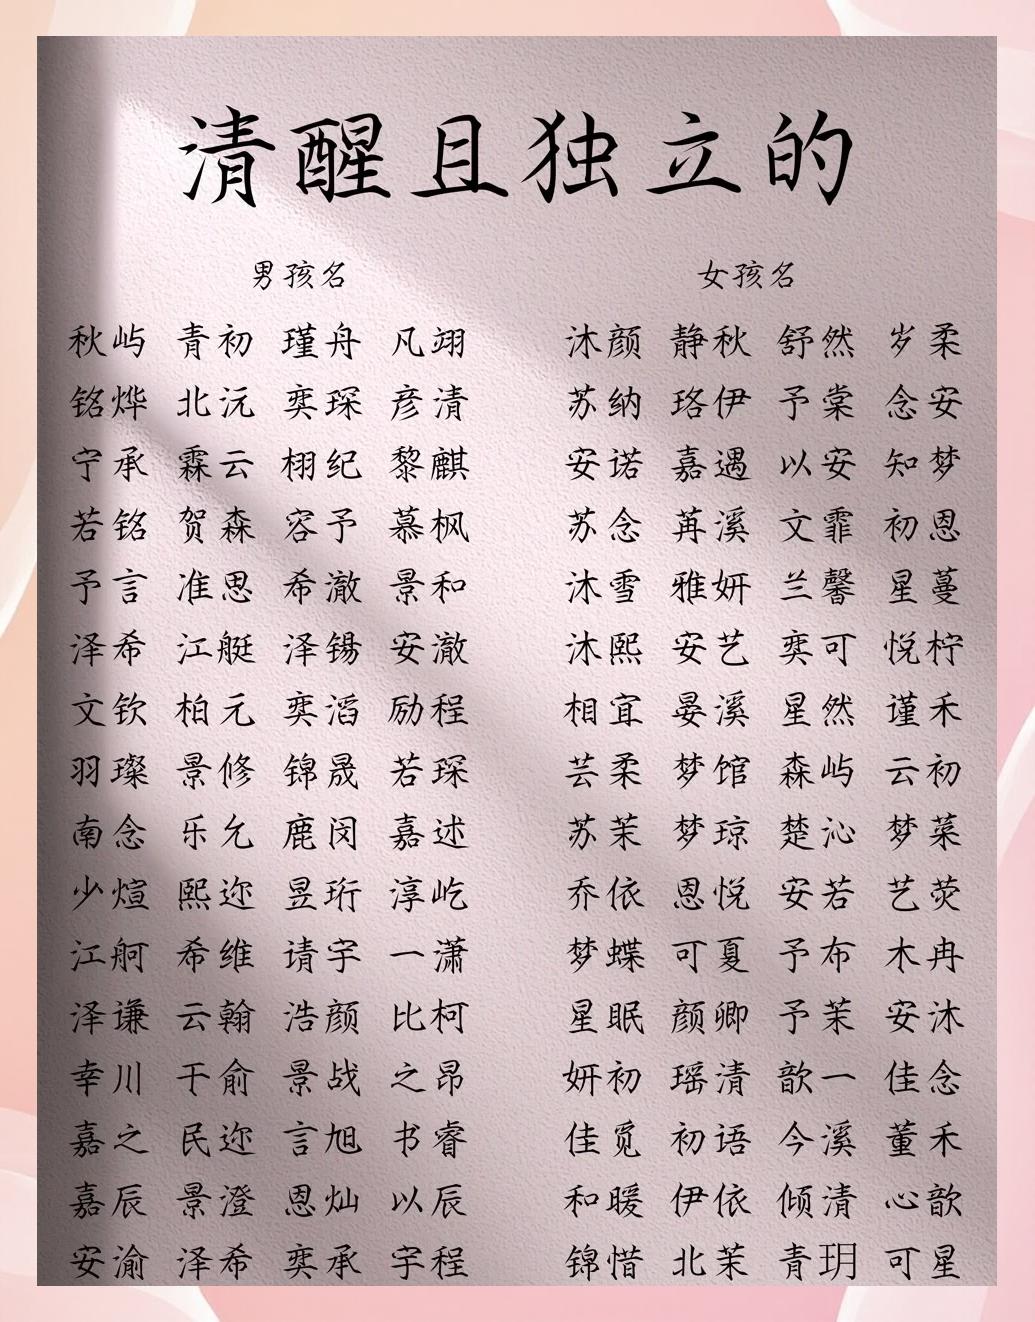 清醒且独立的
男孩名 女孩名
秋屿 青初 瑾舟 凡翊 沐颜 静秋 舒然 岁柔
铭烨 北沅 奕琛 彦清 苏纳 珞伊 予棠 念安
宁承 霖云 栩纪 黎麒 安诺 嘉遇 以安 知梦
若铭 贺森 容予 慕枫 苏念 苒溪 文霏 初恩
予言 准思 希澈 景和 沐雪 雅妍 兰馨 星蔓
泽希 江艇 泽锡 安澈 沐熙 安艺 奕可 悦柠
文钦 柏元 奕滔 励程 相宜 晏溪 星然 谨禾
羽璨 景修 锦晟 若琛 芸柔 梦馆 森屿 云初
南念 乐允 鹿闵 嘉述 苏茉 梦琼 楚沁 梦菜
少煊 熙迩 昱珩 淳屹 乔依 恩悦 安若 艺荧
江舸 希维 请宇 一潇 梦蝶 可夏 予布 木冉
泽谦 云翰 浩颜 比柯 星眠 颜卿 予茉 安沐
幸川 干俞 景战 之昂 妍初 瑶清 歆一 佳念
嘉之 民迩 言旭 书睿 佳觅 初语 今溪 董禾
嘉辰 景澄 恩灿 以辰 和暖 伊依 倾清 心歆
安渝 泽希 奕承 宇程 锦惜 北茉 青玥 可星